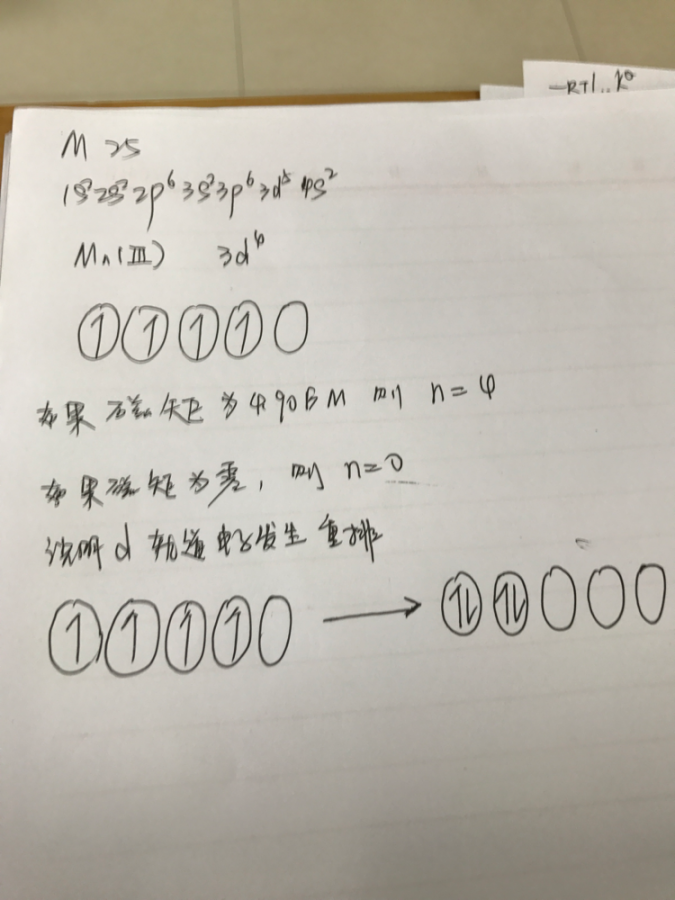 —RTl..k⁰
M 25
1s²2s²2p⁶3s²3p⁶3d⁵4s²
Mn(III) 3d⁴
如果磁矩为4.90BM 则 n=4
如果磁矩为零，则 n=0
说明d轨道电子发生重排